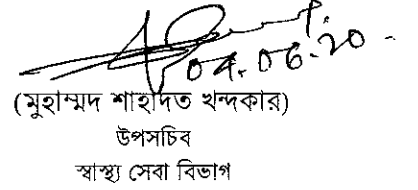 04.06.20
(মুহাম্মদ শাহাদত খন্দকার)
উপসচিব
স্বাস্থ্য সেবা বিভাগ